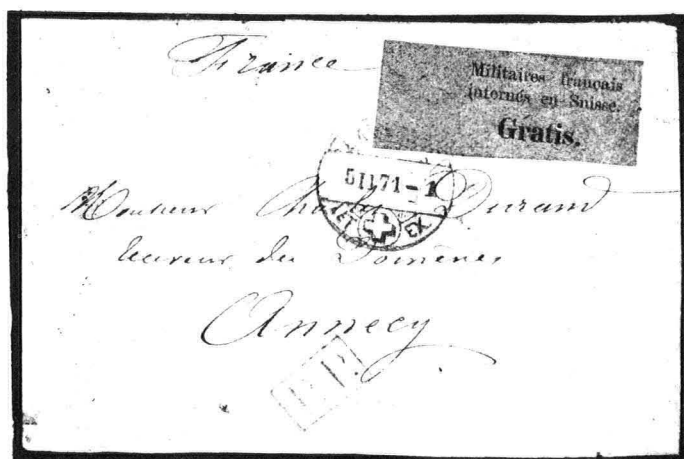 France
Militaires français
internés en Suisse.
Gratis.
5 II 71 - 1
LET EX
Monsieur Durand
des Domènes
Annecy
P.P.